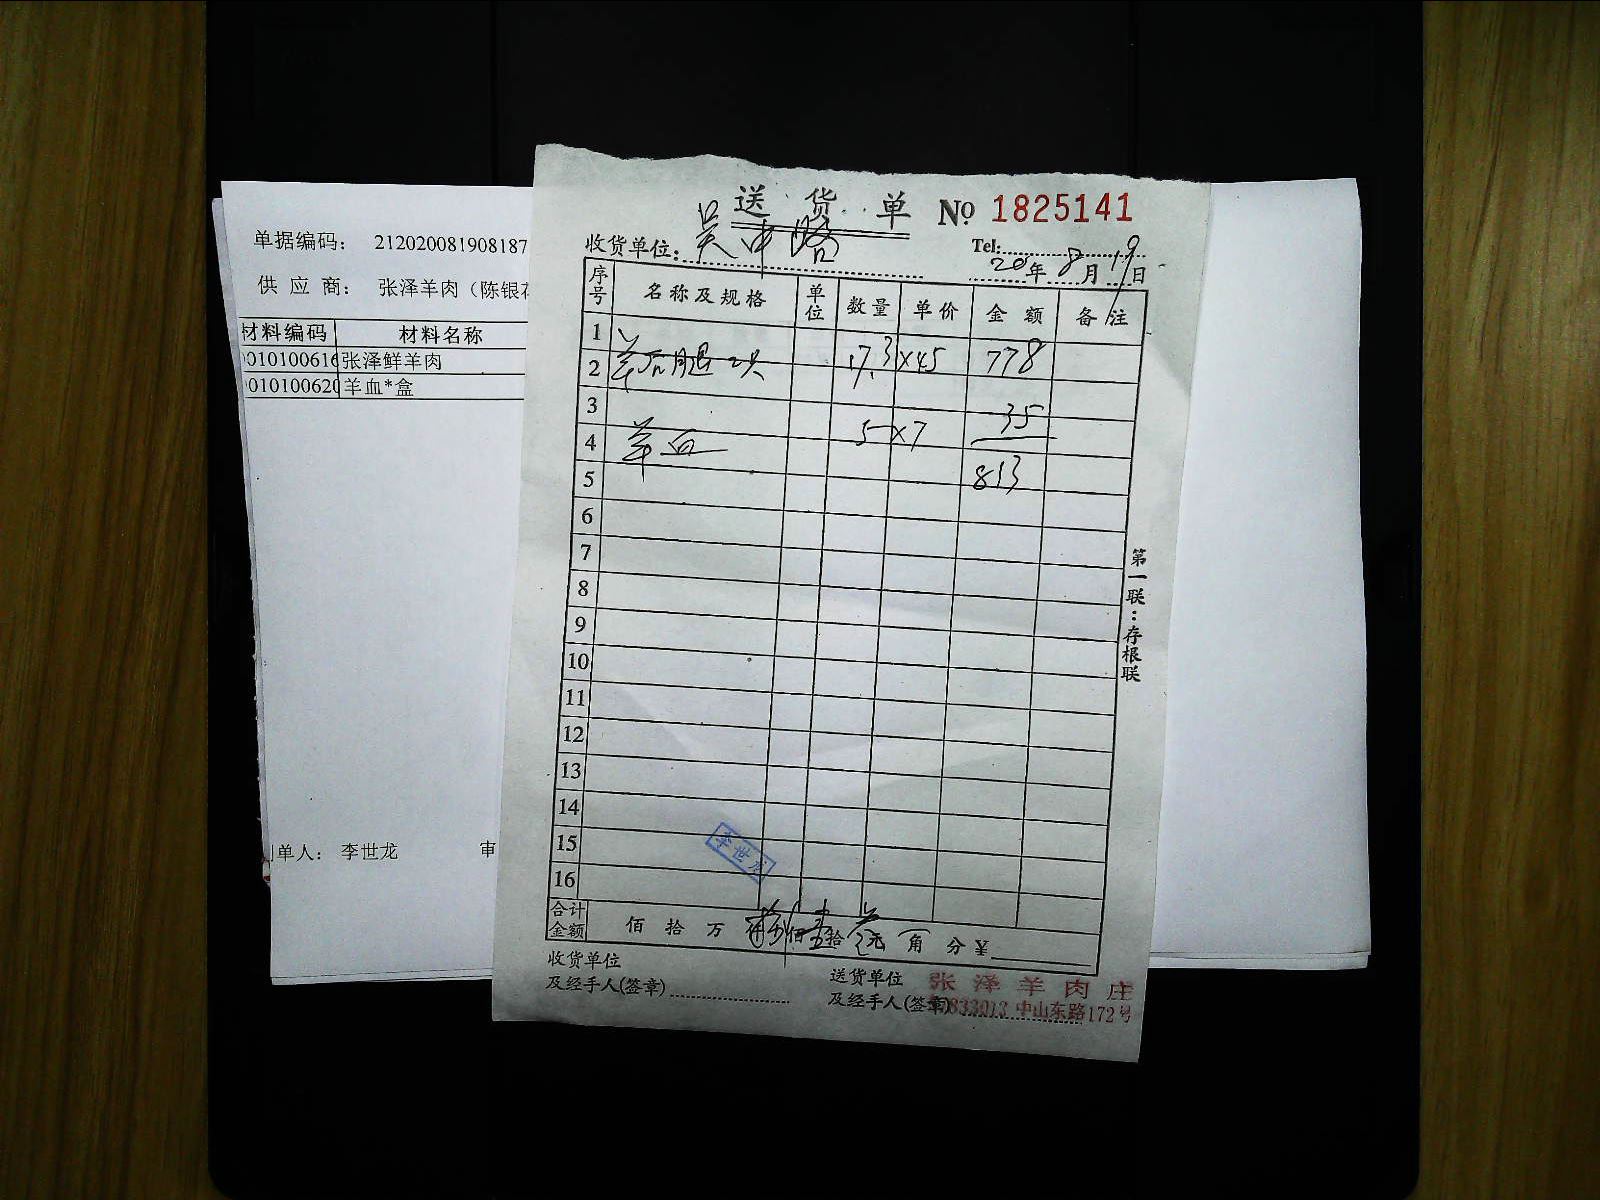 单据编码： 212020081908187
供 应 商： 张泽羊肉（陈银
材料编码 材料名称
01010061 张泽鲜羊肉
01010062 羊血*盒
单人： 李世龙 审
送 货 单 № 1825141
收货单位： 吴中路 Tel:
20年 8月 19日
序号 名称及规格 单位 数量 单价 金额 备注
1
2 羊后腿 2只 17.3 ×45 778
3
4 羊血 5 ×7 35
5 813
6
7
8
9
10
11
12
13
14
15
16
李世龙
合计金额 佰 拾 万 捌佰壹拾 元 角 分 ¥
收货单位
及经手人(签章)
送货单位
及经手人(签章)
张泽羊肉庄
833013 中山东路172号
第一联：存根联